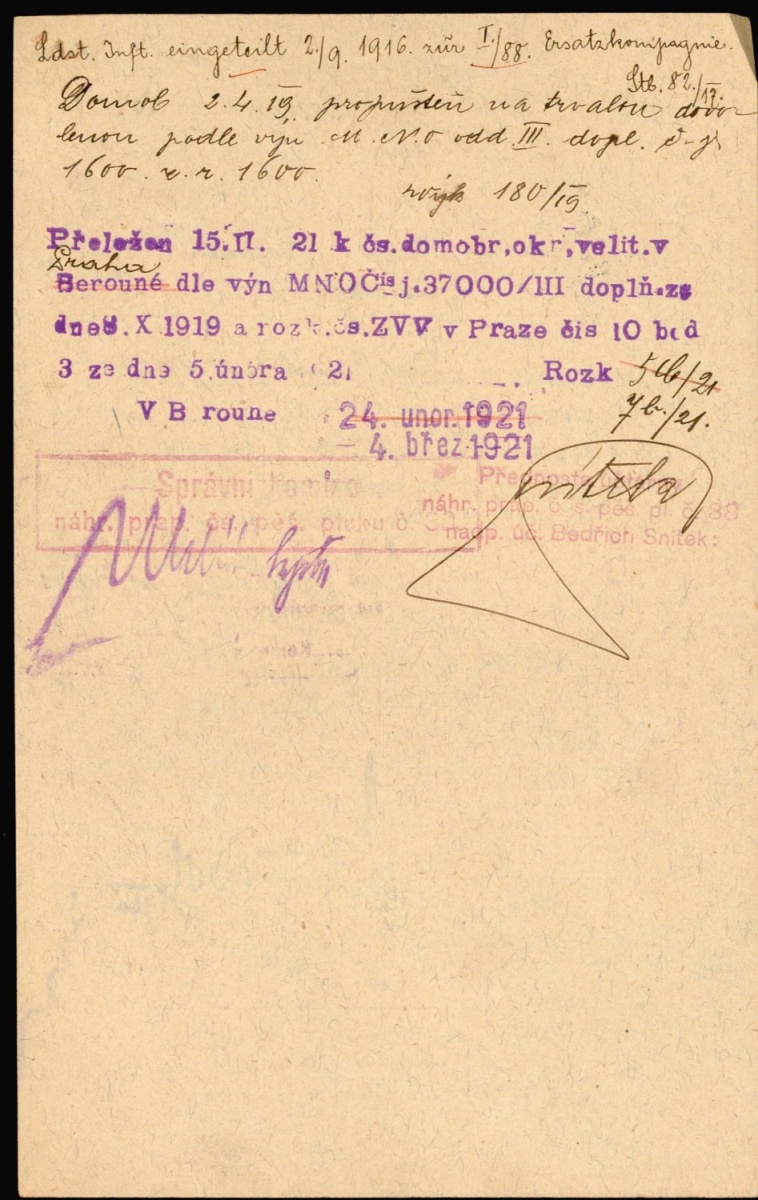 Ldst. Inft. eingeteilt 2./9. 1916. zür I./88. Ersatzkompagnie.
Stb. 82./17.
Domob 2. 4. 19. propuštěn na trvalou dovo-
lenou podle výn. M. N. O odd. III. dopl. č. j.
1600. z. r. 1600.
180/19.
Přeložen 15.II. 21 k čs.domobr,okr,velit.v
Praha
Berouně dle výn MNOČis j.37000/III doplň.ze
dne 8. X 1919 a rozk.čs.ZVV v Praze čis 10 bod
3 ze dne 5.února 21 Rozk 5b/21
7b./21.
V B roune 24. unor.1921
- 4. břez 1921
Správní komise
náhr. prap. čs. pěš. pluku č. 88
Přednosta
náhr. prap. čs. pěš. pl. č. 88
nadp. úč. Bedřich Snítek: